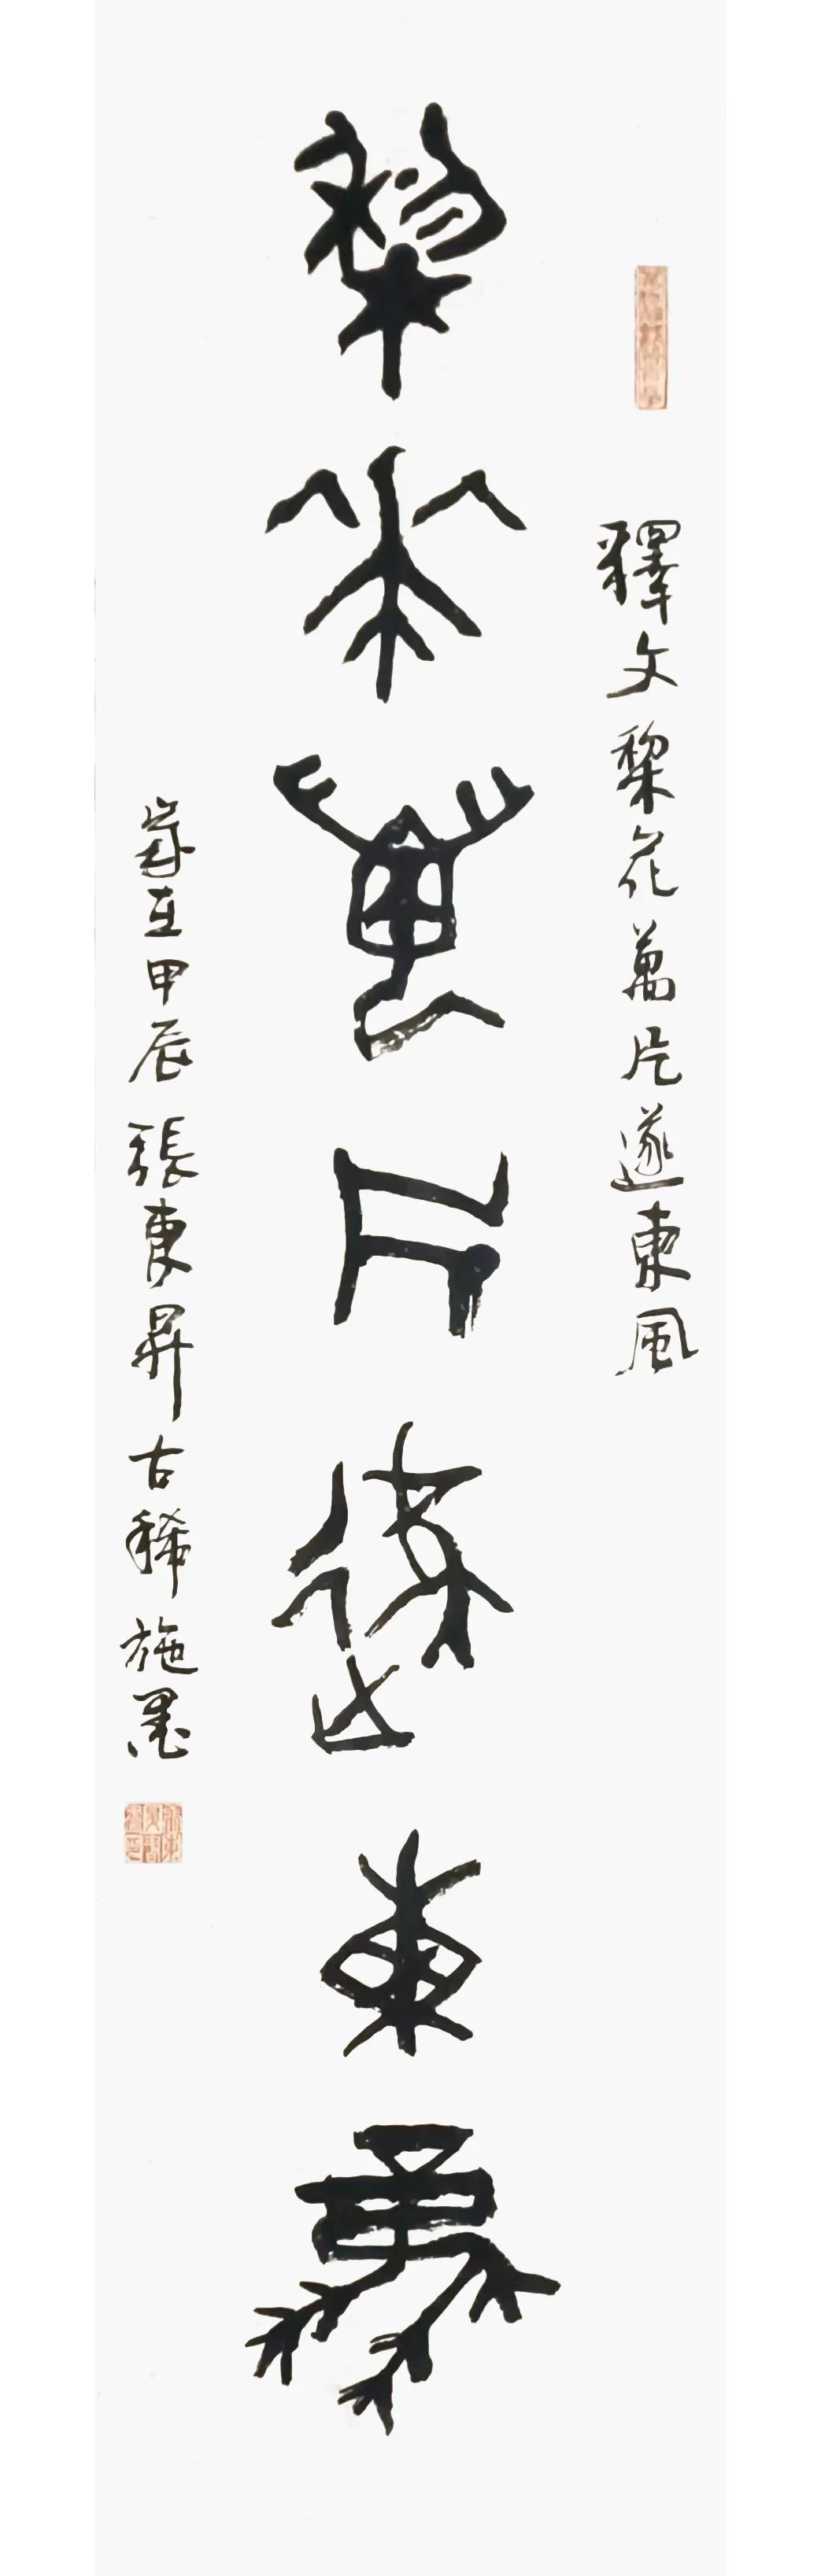 釋文棃花萬片遂東風
棃花萬片遂東風
歲在甲辰張東昇古稀施墨